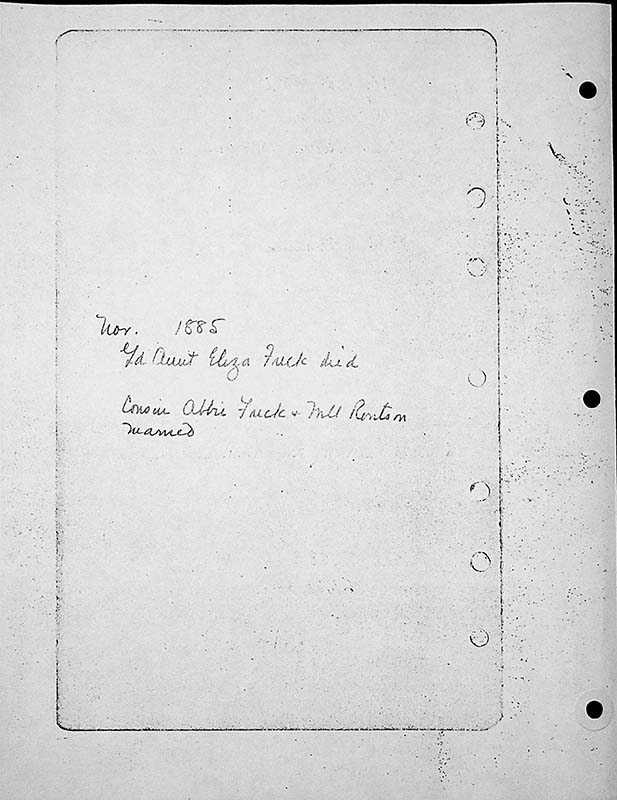 Nov. 1885
Gd Aunt Eliza Frick died
Cousin Abbie Frick & Will Rentson
married